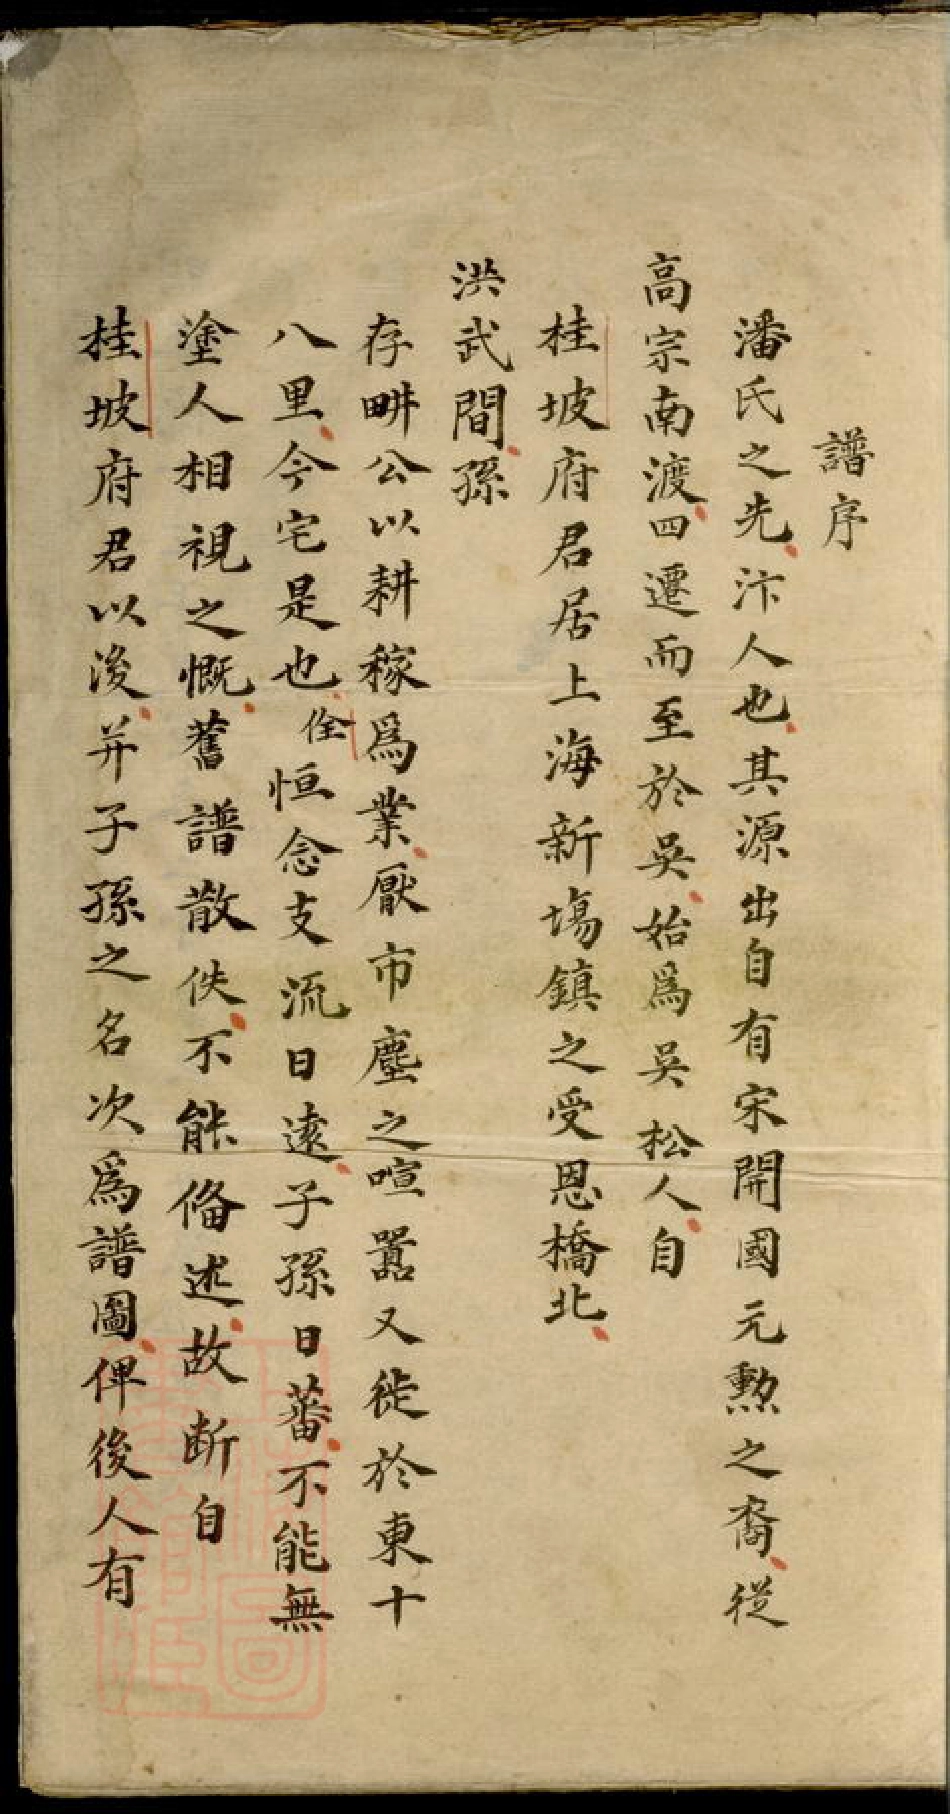 譜序
潘氏之先汴人也其源出自有宋開國元勲之裔從
高宗南渡四遷而至於吳始爲吳松人自
桂坡府君居上海新塲鎮之受恩橋北
洪武間孫
存畊公以耕稼爲業厭市塵之喧嚣又徙於東十
八里今宅是也佺恒念支流日遠子孫日蕃不能無
塗人相視之慨舊譜散佚不能俻述故断自
桂坡府君以後并子孫之名次爲譜圖俾後人有